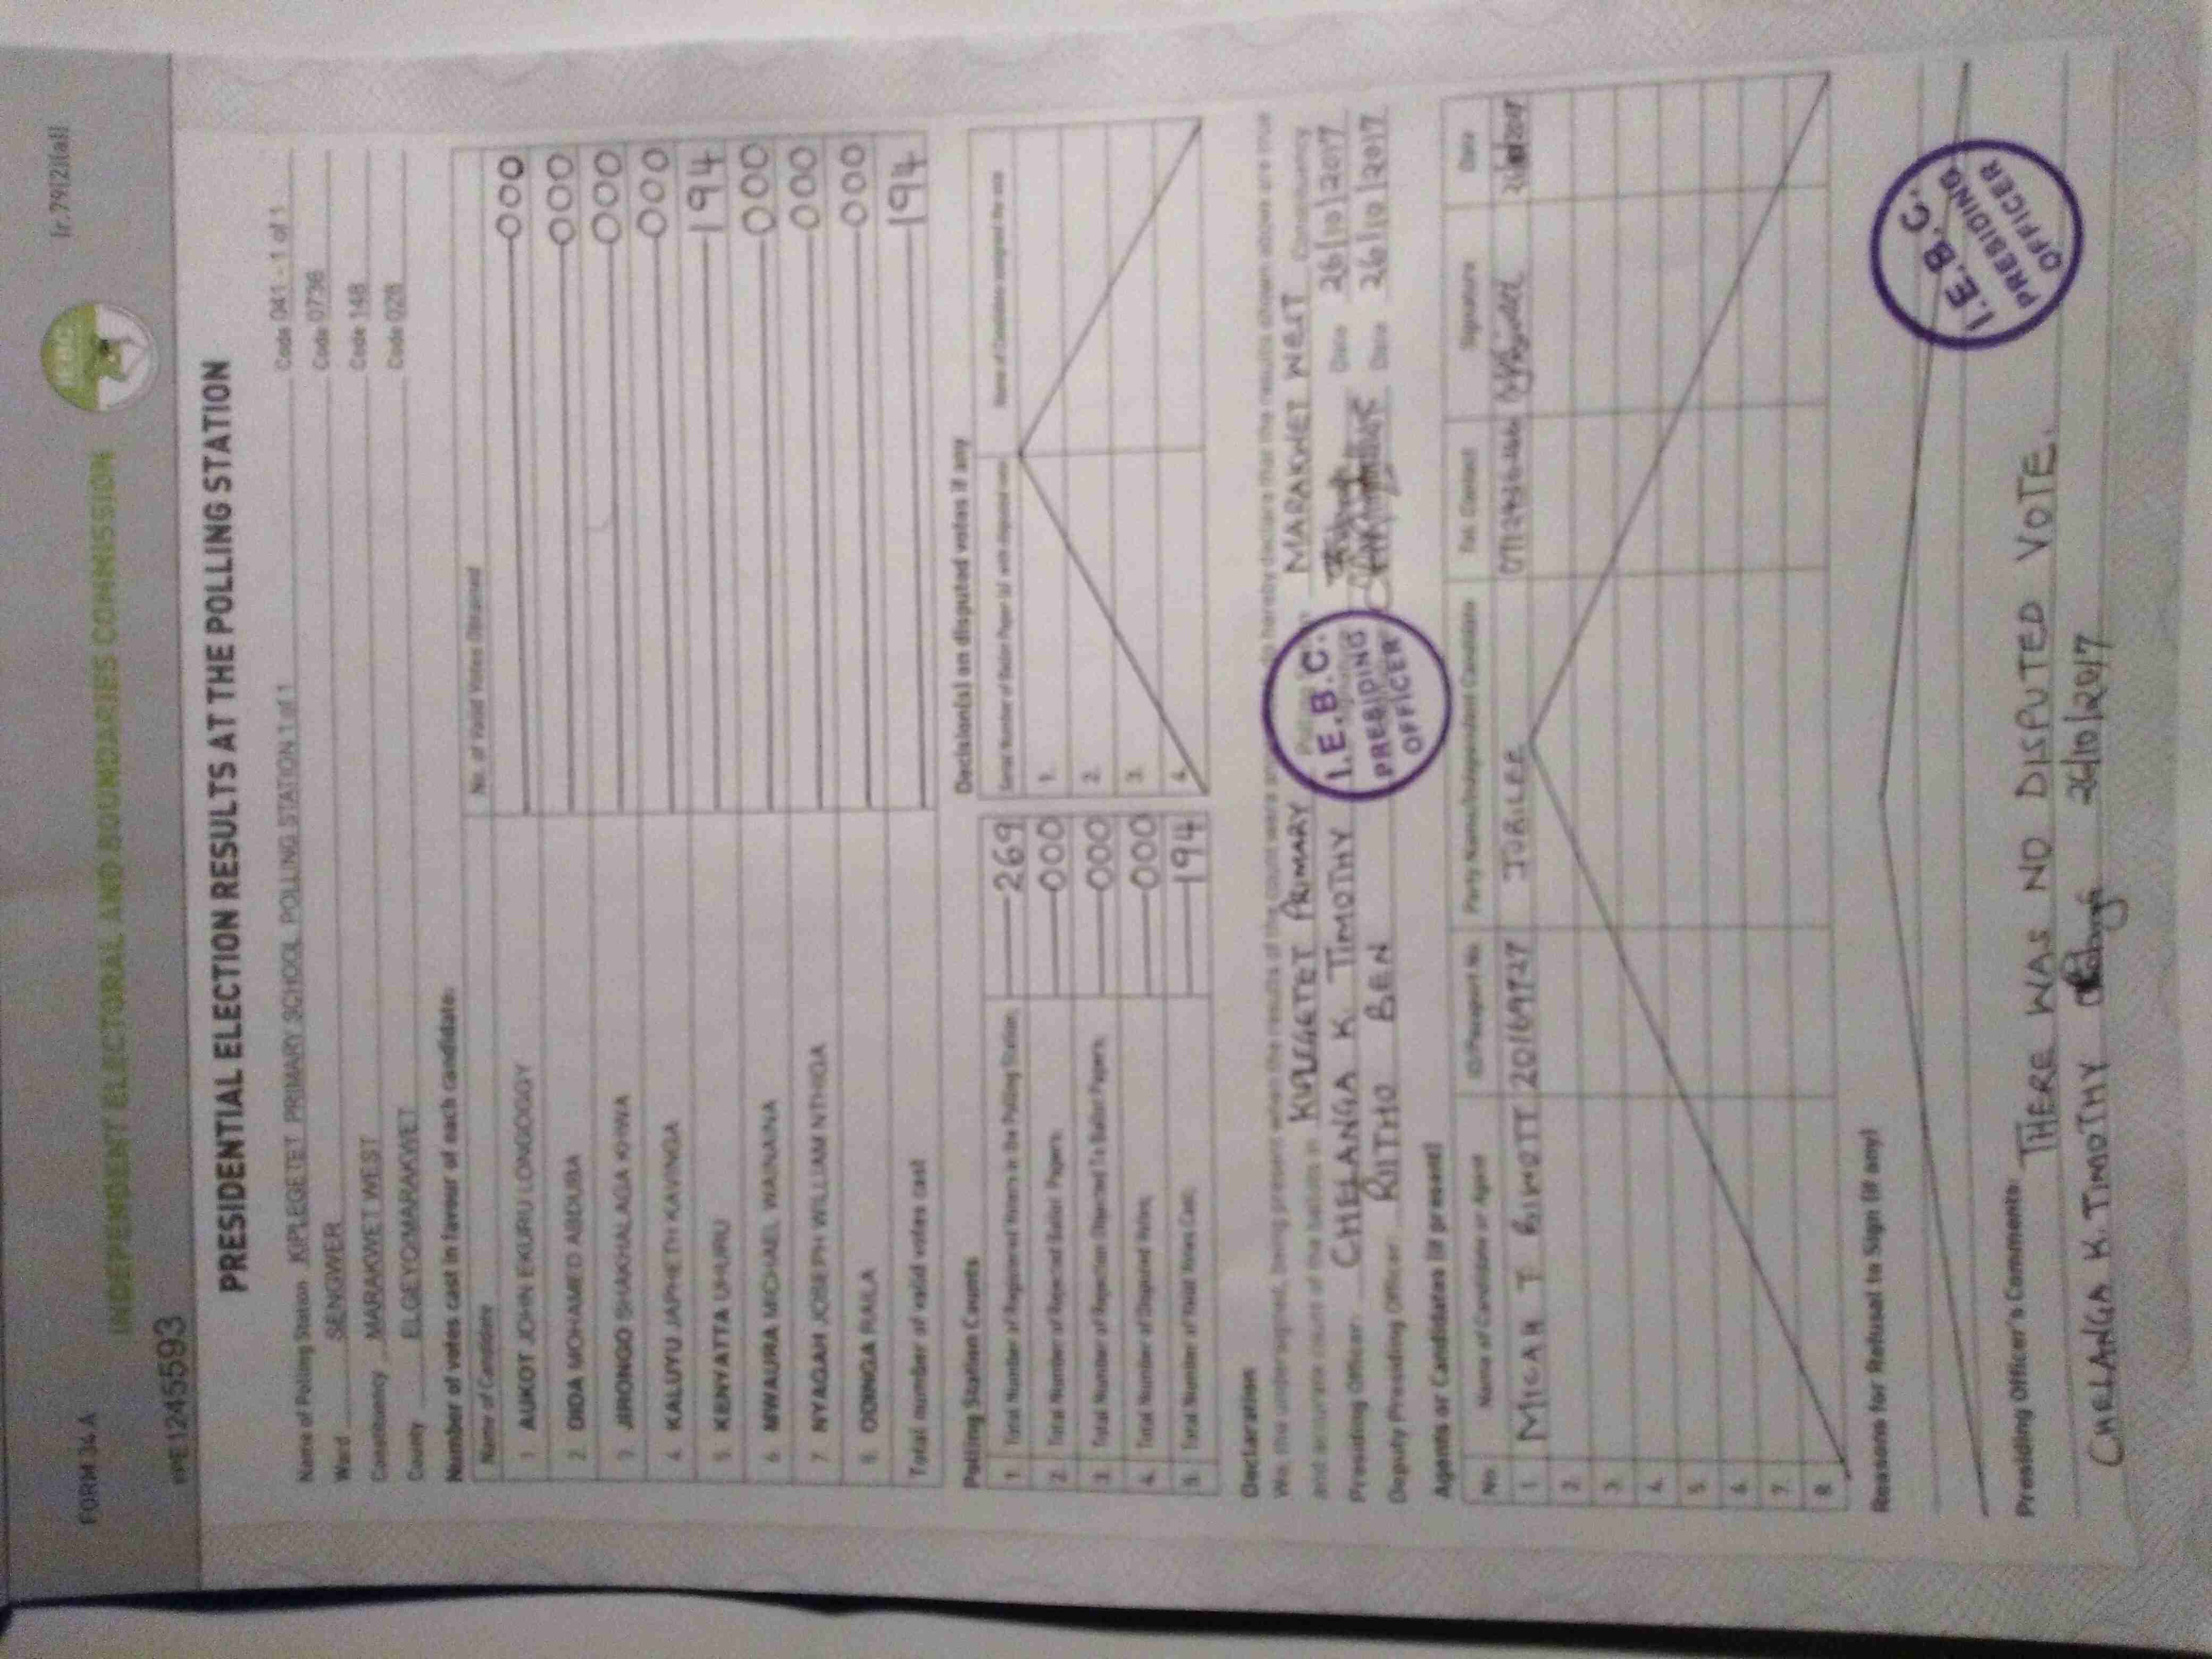 FORM 34A
(r.79(2)(a))
INDEPENDENT ELECTORAL AND BOUNDARIES COMMISSION
IEBC
PE1245593
PRESIDENTIAL ELECTION RESULTS AT THE POLLING STATION
Name of Polling Station KIPLEGETET PRIMARY SCHOOL POLLING STATION 1 of 1 Code 041 - 1 of 1
Ward SENGWER Code 0736
Constituency MARAKWET WEST Code 148
County ELGEYO/MARAKWET Code 028
Number of votes cast in favour of each candidate:
Name of Candidate No. of Valid Votes Obtained
1 AUKOT JOHN EKURU LONGOGGY 000
2 DIDA MOHAMED ABDUBA 000
3 JIRONGO SHAKHALAGA KHWA 000
4 KALUYU JAPHETH KAVINGA 000
5 KENYATTA UHURU 194
6 MWAURA MICHAEL WAINAINA 000
7 NYAGAH JOSEPH WILLIAM NTHIGA 000
8 ODINGA RAILA 000
Total number of valid votes cast 194
Polling Station Counts
1. Total Number of Registered Voters in the Polling Station 269
2. Total Number of Rejected Ballot Papers 000
3. Total Number of Rejection Objected To Ballot Papers 000
4. Total Number of Disputed Votes 000
5. Total Number of Valid Votes Cast 194
Decision(s) on disputed votes if any
1.
2.
3.
4.
Declaration
We, the undersigned, being present when the results of the count were hereby declare that the results shown above are true
and accurate count of the ballots in KIPLEGETET PRIMARY MARAKWET WEST Constituency
Presiding Officer CHELANGA K TIMOTHY Date 26/10/2017
Deputy Presiding Officer RUTTO BEN Date 26/10/2017
I.E.B.C.
PRESIDING
OFFICER
Agents or Candidates (if present)
No. Name of Candidate or Agent ID/Passport No. Party Name/Independent Candidate Tel. Contact Signature Date
1 MICAH T JUBILEE
2.
3.
4.
5.
6.
7.
8.
Reasons for Refusal to Sign (if any)
I.E.B.C.
PRESIDING
OFFICER
Presiding Officer's Comments: THERE WAS NO DISPUTED VOTE.
CHELANGA K TIMOTHY 26/10/2017